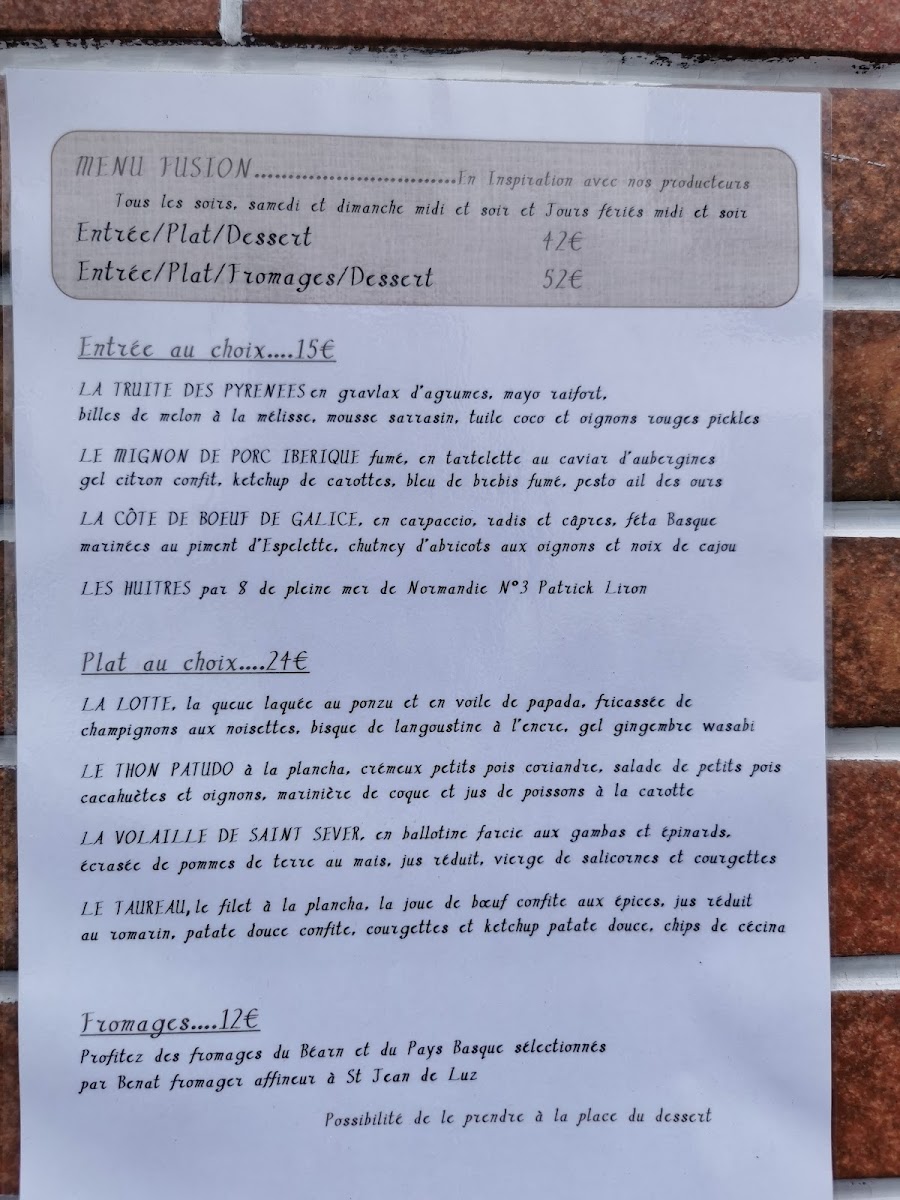 MENU FUSION..............................En Inspiration avec nos producteurs
Tous les soirs, samedi et dimanche midi et soir et Jours fériés midi et soir
Entrée/Plat/Dessert 42€
Entrée/Plat/Fromages/Dessert 52€
Entrée au choix....15€
LA TRUITE DES PYRENEES en gravlax d'agrumes, mayo raifort,
billes de melon à la mélisse, mousse sarrasin, tuile coco et oignons rouges pickles
LE MIGNON DE PORC IBERIQUE fumé, en tartelette au caviar d'aubergines
gel citron confit, ketchup de carottes, bleu de brebis fumé, pesto ail des ours
LA CÔTE DE BOEUF DE GALICE, en carpaccio, radis et câpres, féta Basque
marinées au piment d'Espelette, chutney d'abricots aux oignons et noix de cajou
LES HUITRES par 8 de pleine mer de Normandie N°3 Patrick Liron
Plat au choix....24€
LA LOTTE, la queue laquée au ponzu et en voile de papada, fricassée de
champignons aux noisettes, bisque de langoustine à l'encre, gel gingembre wasabi
LE THON PATUDO à la plancha, crémeux petits pois coriandre, salade de petits pois
cacahuètes et oignons, marinière de coque et jus de poissons à la carotte
LA VOLAILLE DE SAINT SEVER, en ballotine farcie aux gambas et épinards,
écrasée de pommes de terre au mais, jus réduit, vierge de salicornes et courgettes
LE TAUREAU, le filet à la plancha, la joue de bœuf confite aux épices, jus réduit
au romarin, patate douce confite, courgettes et ketchup patate douce, chips de cécina
Fromages....12€
Profitez des fromages du Béarn et du Pays Basque sélectionnés
par Benat fromager affineur à St Jean de Luz
Possibilité de le prendre à la place du dessert